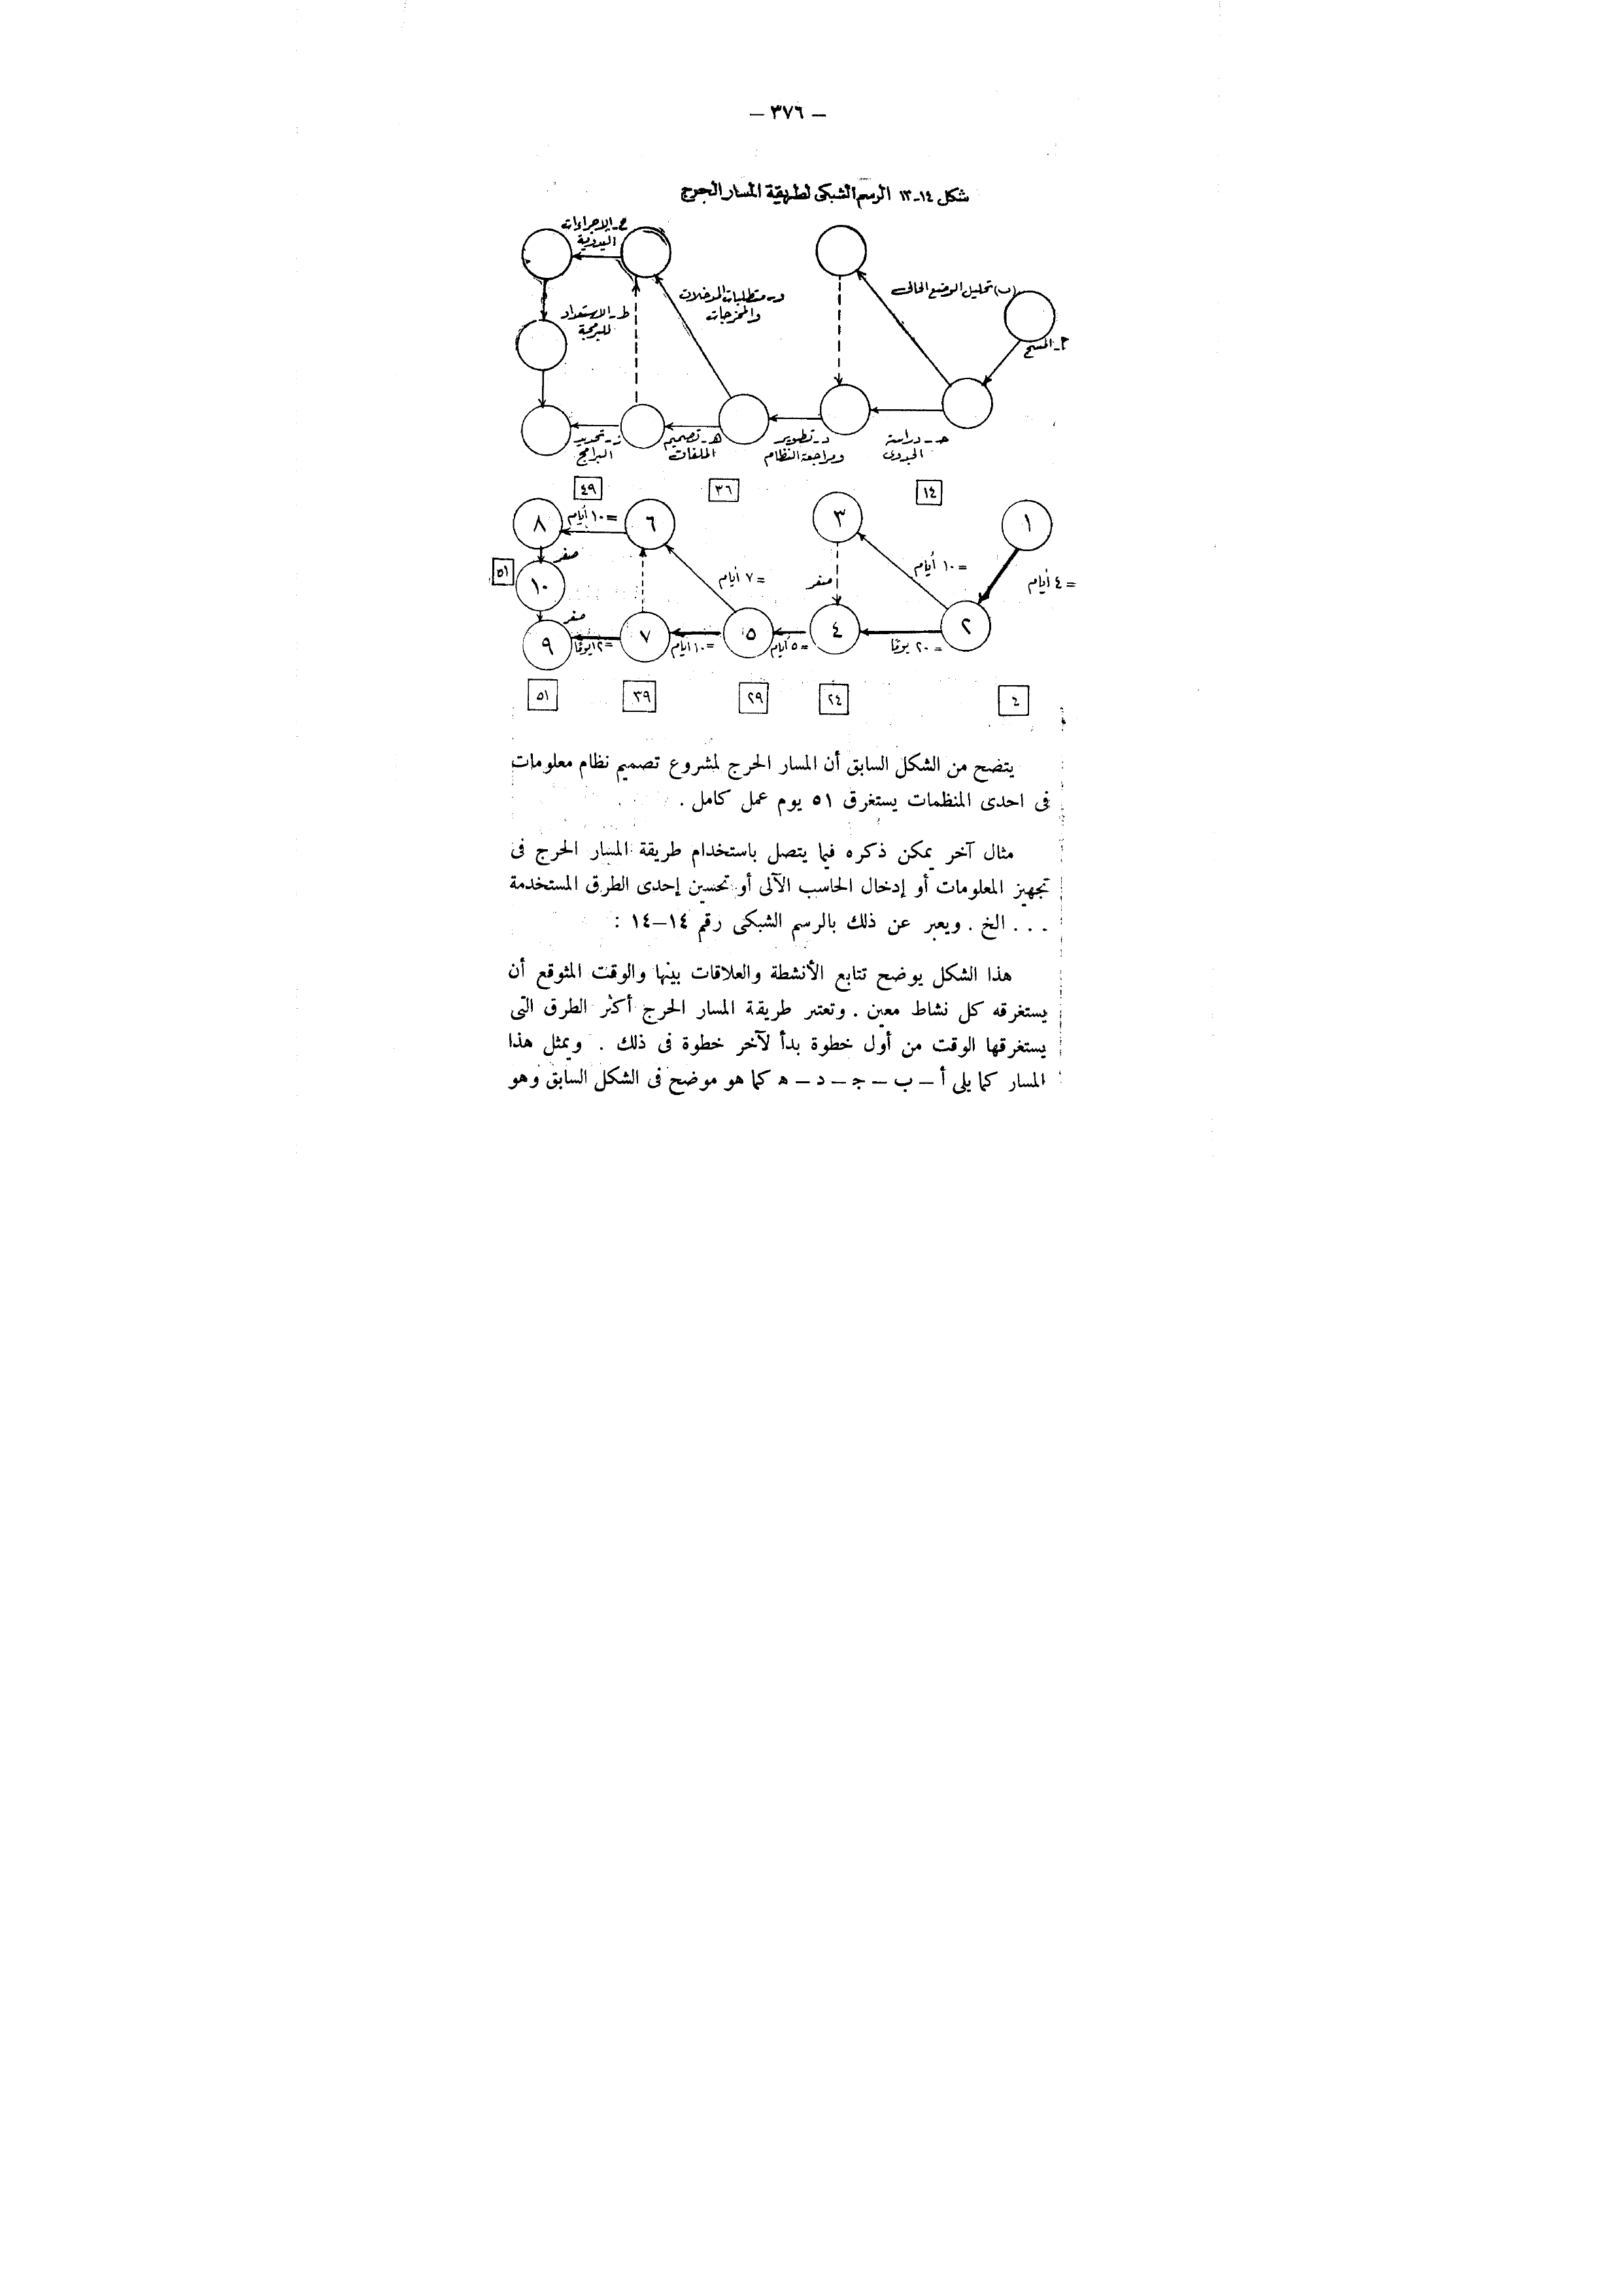 — ٣٧٦ —
شكل ١٤-١٣ الرسم الشبكى لطريقة المسار الحرج
ح- الإجراءات
اليدوية
(ب) تحليل الوضع الحالى
و- متطلبات المدخلات
والمخرجات
ط- الاستعداد
للبرمجة
أ- المسح
حـ- دراسة
الجدوى
د- تطوير
ومراجعة النظام
هـ- تصميم
الملفات
ز- تحديد
البرامج
١٤
٣٦
٤٩
١
٣
٦
٨
= ١٠ أيام
= ٤ أيام
= ١٠ أيام
صفر
= ٧ أيام
صفر
١٠
٥١
صفر
٢
٤
٥
٧
٩
= ٢٠ يومًا
= ٥ أيام
= ١٠ أيام
= ١٢ يومًا
٤
٢٤
٢٩
٣٩
٥١
يتضح من الشكل السابق أن المسار الحرج لمشروع تصميم نظام معلومات
فى احدى المنظمات يستغرق ٥١ يوم عمل كامل .
مثال آخر يمكن ذكره فيما يتصل باستخدام طريقة المسار الحرج فى
تجهيز المعلومات أو إدخال الحاسب الآلى أو تحسين إحدى الطرق المستخدمة
. . . الخ . ويعبر عن ذلك بالرسم الشبكى رقم ١٤–١٤ :
هذا الشكل يوضح تتابع الأنشطة والعلاقات بينها والوقت المتوقع أن
يستغرقه كل نشاط معين . وتعتبر طريقة المسار الحرج أكثر الطرق التى
يستغرقها الوقت من أول خطوة بدأ لآخر خطوة فى ذلك . ويمثل هذا
المسار كما يلى أ – ب – جـ – د – هـ كما هو موضح فى الشكل السابق وهو